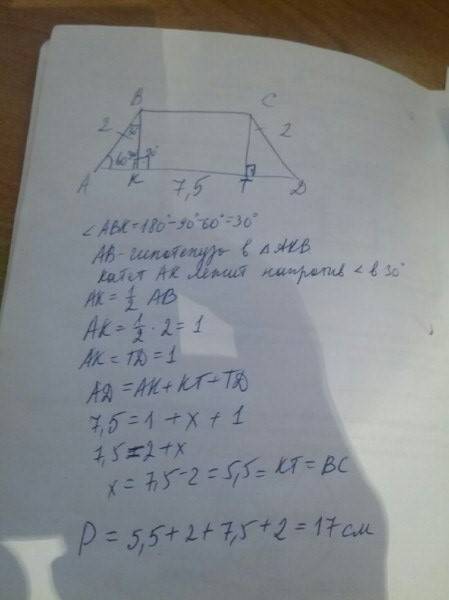 B C
2 30° 2
60° 90°
A K 7,5 T D
∠ABK=180°-90°-60°=30°
AB-гипотенуза в △AKB
Катет AK лежит напротив ∠ в 30°
AK=1/2 AB
AK=1/2·2=1
AK=TD=1
AD=AK+KT+TD
7,5=1+x+1
7,5=2+x
x=7,5-2=5,5=KT=BC
P=5,5+2+7,5+2=17см